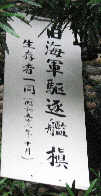 旧海軍駆逐艦 槇
生存者一同